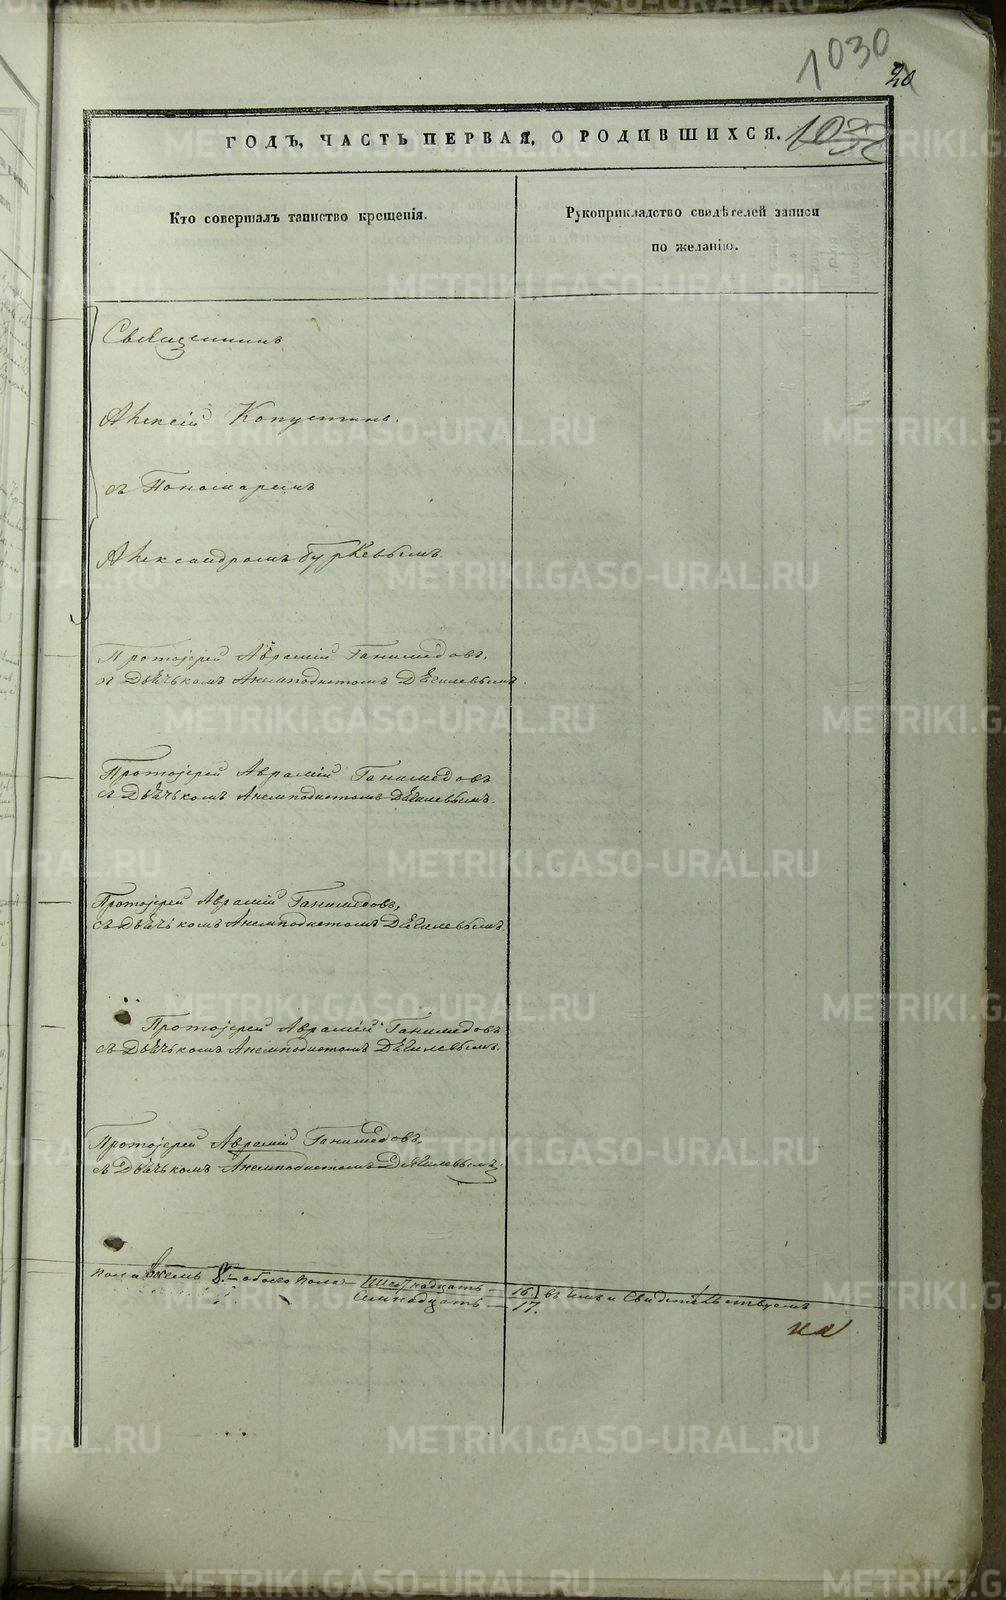 1030
20
ГОДЪ, ЧАСТЬ ПЕРВАЯ, О РОДИВШИХСЯ.
Кто совершалъ таинство крещенія.
Рукоприкладство свидѣтелей записи
по желанію.
Священникъ
Алексій Копустинъ.
съ Пономаремъ
Александромъ Бурлевымъ
Протоіерей Аврамій Ганимедовъ,
съ Дьячькомъ Анемподистомъ Дѣгилевымъ.
Протоіерей Аврамій Ганимедовъ
съ Дьячькомъ Анемподистомъ Дѣгилевымъ.
Протоіерей Аврамій Ганимедовъ,
съ Дьячькомъ Анемподистомъ Дѣгилевымъ
Протоіерей Аврамій Ганимедовъ
съ Дьячькомъ Анемподистомъ Дѣгилевымъ.
Протоіерей Аврамій Ганимедовъ,
съ Дьячькомъ Анемподистомъ Дѣгилевымъ.
пола 8. обоего пола — Шестнадцать — 16 въ чемъ и Свидетельствуемъ
Семнадцать — 17.
METRIKI.GASO-URAL.RU